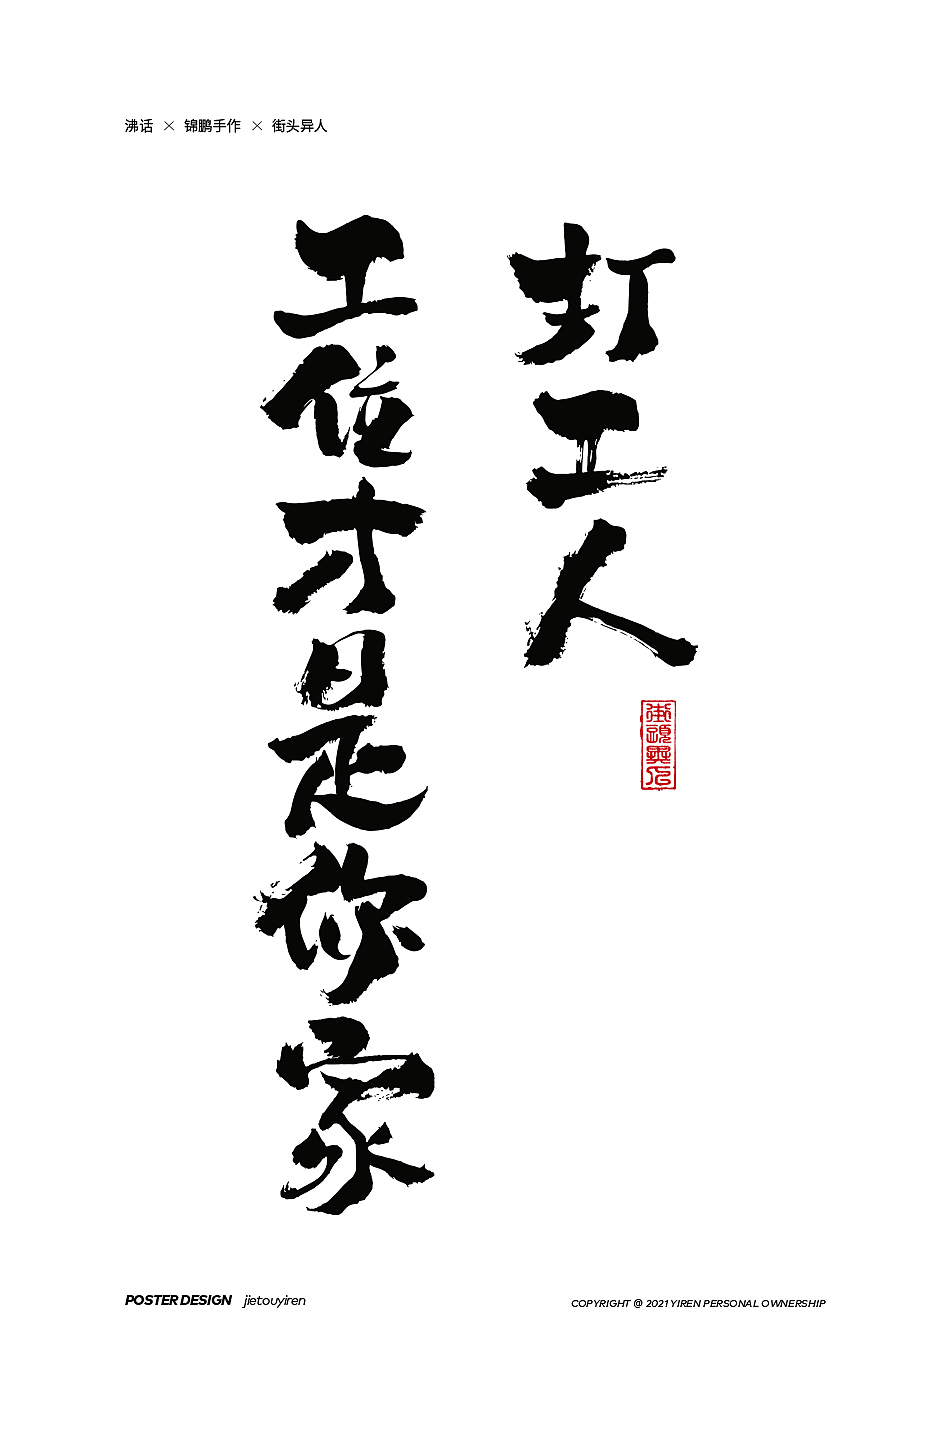 沸话 × 锦鹏手作 × 街头异人
打工人
工位才是你家
街頭異人
POSTER DESIGN jietouyiren
COPYRIGHT @ 2021 YIREN PERSONAL OWNERSHIP